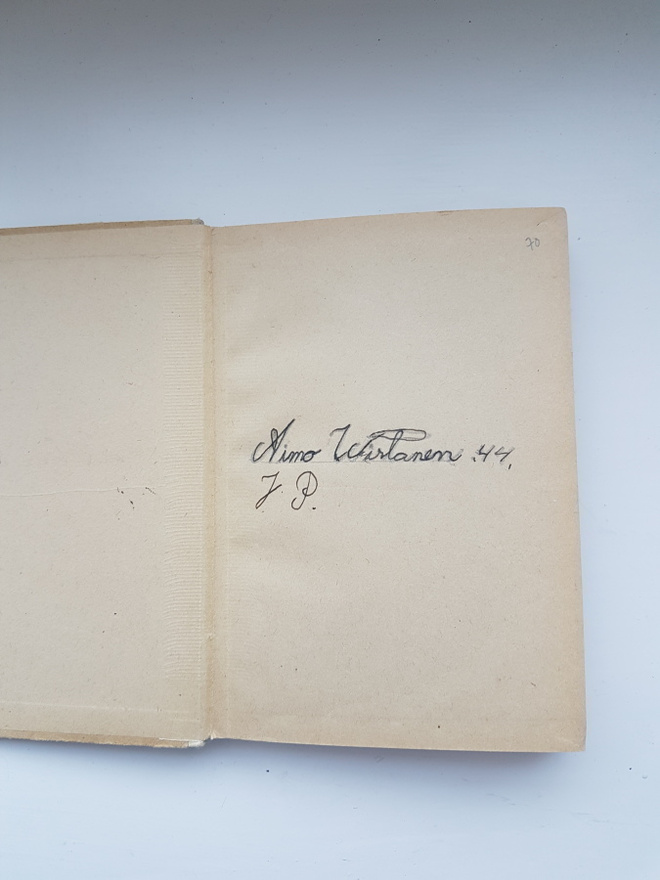 70
Aimo Wirtanen .44.
J. P.